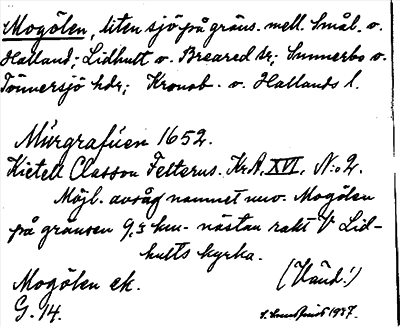 Mogölen, liten sjö på gräns. mell. Smål. o.
Halland; Lidhult o. Breared sr; Sunnerbo o.
Tönnersjö hdr; Kronob. o. Hallands l.
Murgrafuen 1652.
Kietell Classon Felterus. KrA, XVI, N:o 2.
Möjl. avsåg namnet nuv. Mogölen
på gränsen 9,5 km. nästan rakt V Lid-
hults kyrka.
Mogölen ek. (Vänd!)
G. 14. 1937.